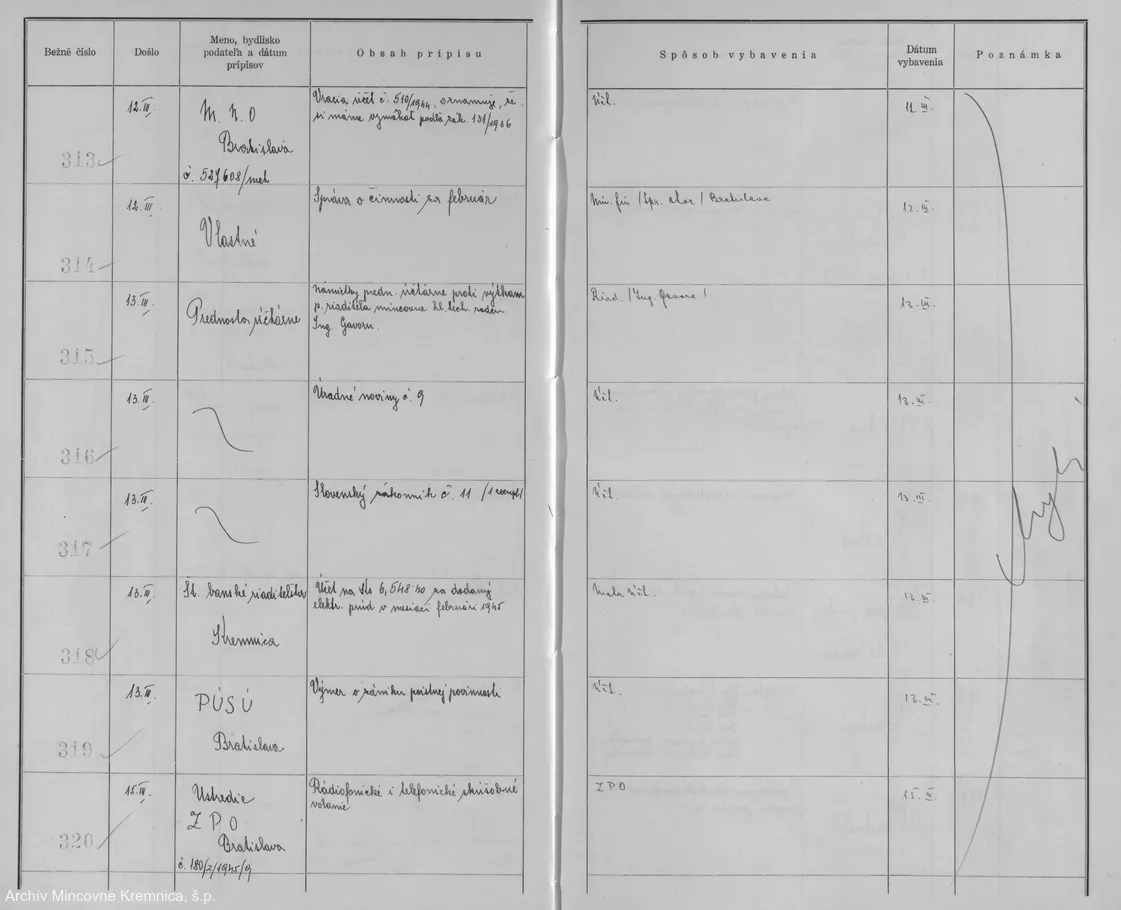 Bežné číslo
Došlo
Meno, bydlisko
podateľa a dátum
prípisov
Obsah prípisu
Spôsob vybavenia
Dátum
vybavenia
Poznámka
313
12.III.
M. N. O
Bratislava
č. 527608/
Vracia účet č. 510/1944, oznamuje, že
si máme vymáhať podľa zák. 131/1936
Úč.
314
12.III.
Vlastné
Správa o činnosti za február
Min. fin. / Bratislava
12.III.
315
13.III.
Prednosta účtárne
Námietky predn. účtárne proti výtkam
p. riaditeľa mincovne hl. tech. radcu
Ing. Gavoru.
Riad. /Ing.
13.III.
316
13.III.
Úradné noviny č. 9
13.III.
317
13.III.
Slovenský zákonník č. 11
13.III.
318
13.III.
Št. banské riaditeľstvo
Kremnica
Účet na Ks 6,548·40 za dodaný
elektr. prúd v mesiaci februári 1945
13.III.
319
13.III.
PÚSÚ
Bratislava
Výmer o zániku poistnej povinnosti
13.III.
320
15.III.
Ústredie
Z P O
Bratislava
č. 180/2/1945/9
Rádiofonické i telefonické skúšobné
volanie
Z P O
15.III.
Archív Mincovne Kremnica, š.p.